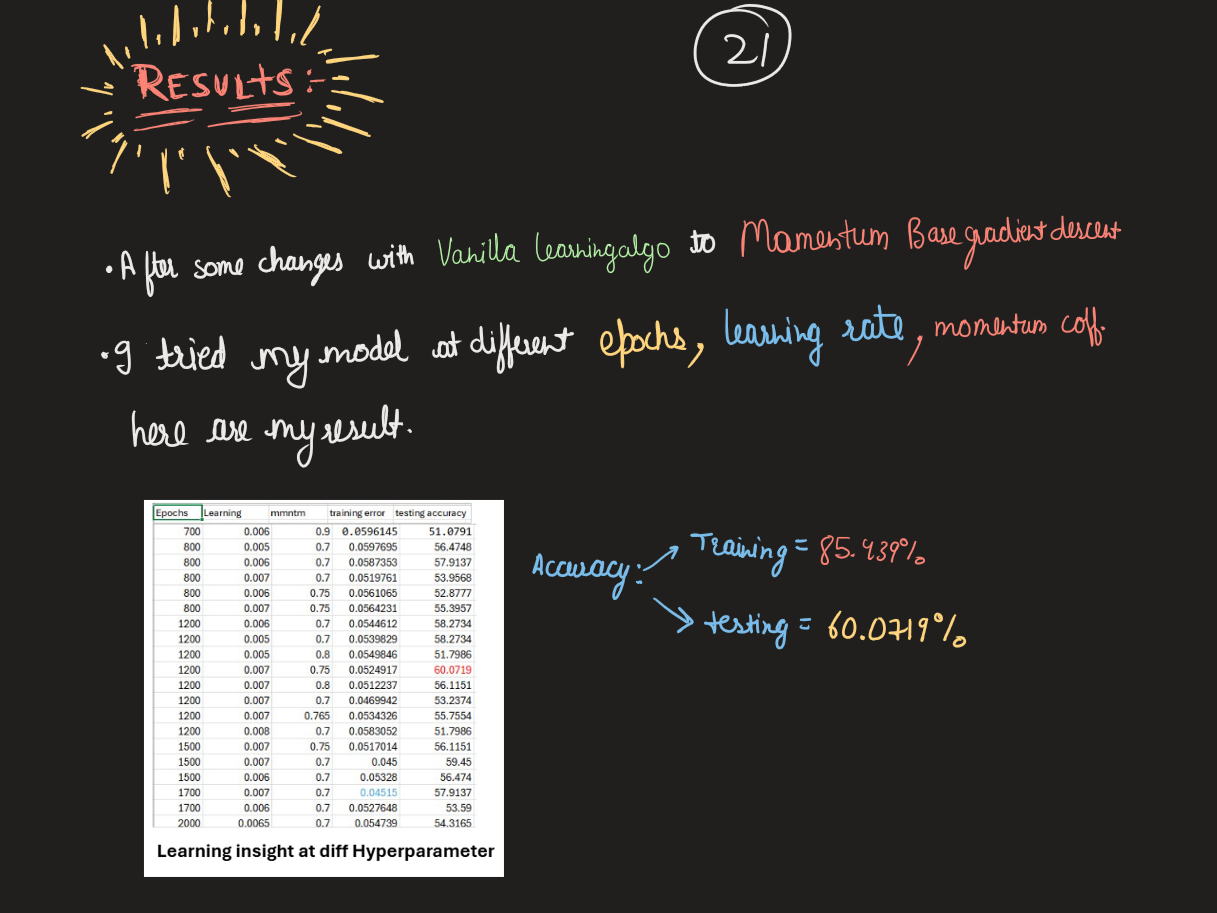 21
RESULTS:-
• After some changes with Vanilla learning algo to Momentum Base gradient descent
• I tried my model at different epochs, learning rate, momentum coff.
here are my result.
Epochs Learning mmntm training error testing accuracy
700 0.006 0.9 0.0596145 51.0791
800 0.005 0.7 0.0597695 56.4748
800 0.006 0.7 0.0587353 57.9137
800 0.007 0.7 0.0519761 53.9568
800 0.006 0.75 0.0561065 52.8777
800 0.007 0.75 0.0564231 55.3957
1200 0.006 0.7 0.0544612 58.2734
1200 0.005 0.7 0.0539829 58.2734
1200 0.005 0.8 0.0549846 51.7986
1200 0.007 0.75 0.0524917 60.0719
1200 0.007 0.8 0.0512237 56.1151
1200 0.007 0.7 0.0469942 53.2374
1200 0.007 0.765 0.0534326 55.7554
1200 0.008 0.7 0.0583052 51.7986
1500 0.007 0.75 0.0517014 56.1151
1500 0.007 0.7 0.045 59.45
1500 0.006 0.7 0.05328 56.474
1700 0.007 0.7 0.04515 57.9137
1700 0.006 0.7 0.0527648 53.59
2000 0.0065 0.7 0.054739 54.3165
Learning insight at diff Hyperparameter
Accuracy:
Training = 85.939%
testing = 60.0719%